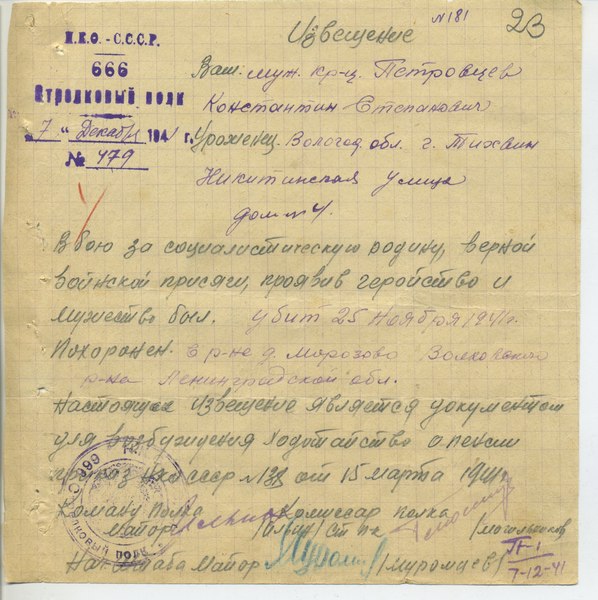 №181
23
Н.К.О. - С.С.С.Р.
666
Стрелковый полк
„7" Декабря 1941 г.
№ 479
Извещение
Ваш: муж кр-ц. Петровцев
Константин Степанович
Уроженец. Вологод. обл. г. Тихвин
Никитинская улица
дом №4.
В бою за социалистическую родину, верной
воинской присяги, проявив геройство и
мужество был. убит 25 ноября 1941г.
Похоронен. в р-не д. Морозово Волховского
р-на Ленинградской обл.
Настоящее извещение является документом
для возбуждения ходотайство о пенсии
приказ Нко ссср №138 от 15 марта 1941г.
Команд Полка Комиссар полка
Майор Ст пк
Нач штаба Майор /Муромцев/
7-12-41